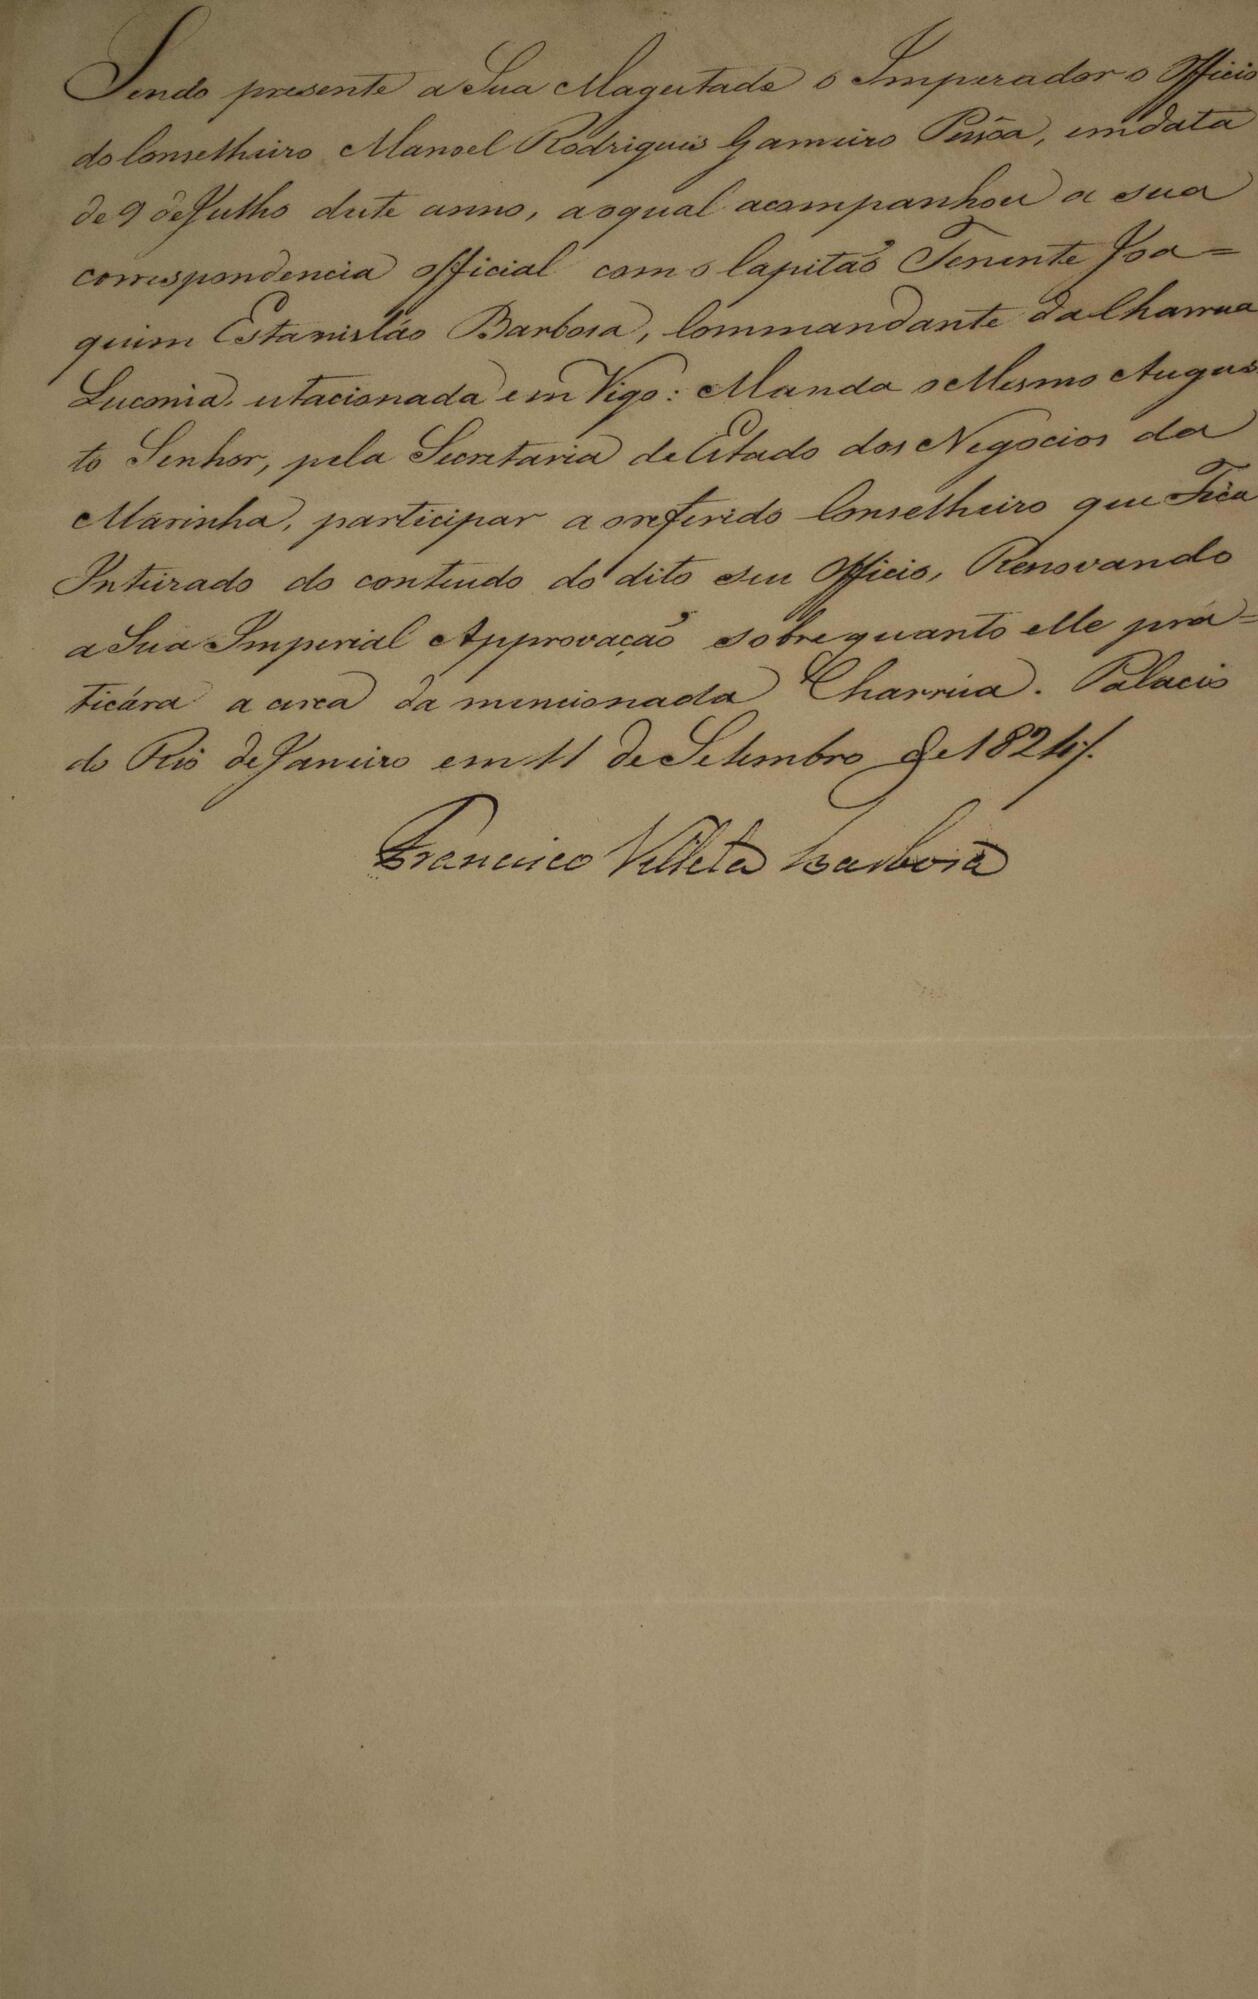 Sendo presente a Sua Magestade o Imperador o Officio
do Conselheiro Manoel Rodrigues Gameiro Pessôa, em data
de 9 de Julho deste anno, ao qual acompanhou a sua
correspondencia official com o Capitaõ Tenente Joa=
quim Estanisláo Barbosa, Commandante da Charrua
Luconia, estacionada em Vigo: Manda o Mesmo Augus
to Senhor, pela Secretaria de Estado dos Negocios da
Marinha, participar ao referido Conselheiro que Fica
Inteirado do conteudo do dito seu Officio, Renovando
a Sua Imperial Approvaçaõ sobre quanto elle pra=
ticára a cerca da mencionada Charrúa. Palacio
do Rio de Janeiro em 11 de Setembro de 1824/.
Francisco Villela Barbosa